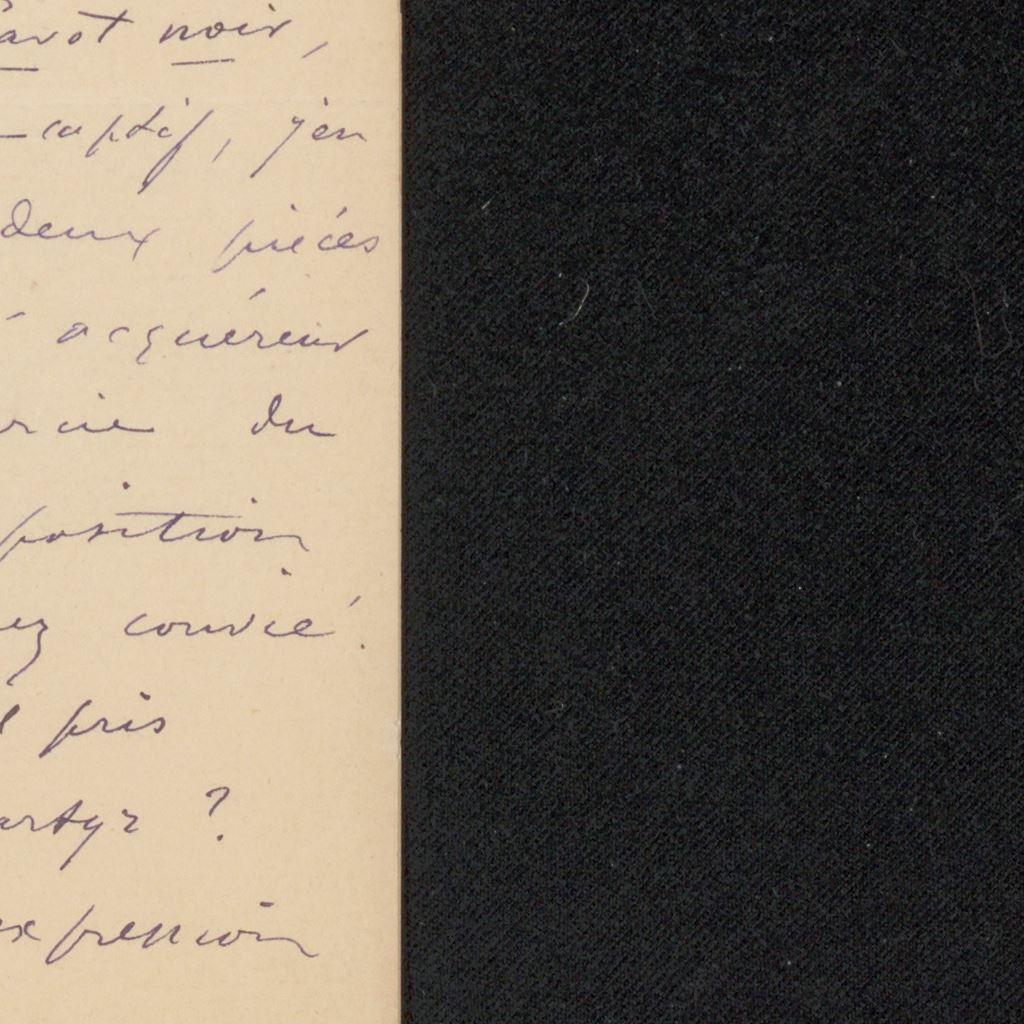 Pavot noir,
-captif, j'en
deux pièces
acquéreur
du
position
ez convié.
pris
artyr ?
expression